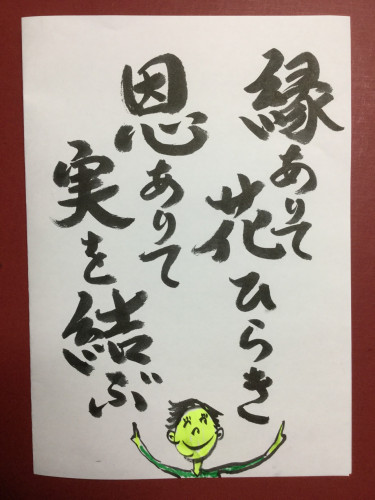 縁ありて
花ひらき
恩ありて
実を結ぶ